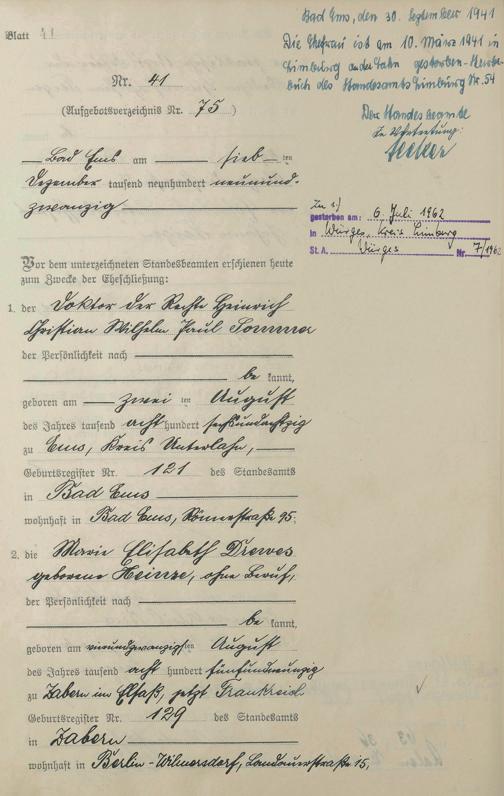 Blatt 41
Bad Ems, den 30. September 1941
Die Ehefrau ist am 10. März 1941 in
Limburg an der Lahn gestorben - Sterbe-
buch des Standesamts Limburg Nr. 54
Der Standesbeamte
In Vertretung:
Nr. 41
(Aufgebotsverzeichnis Nr. 75)
Bad Ems am sieb ten
Dezember tausend neunhundert neunund-
zwanzig
Zu 1)
gestorben am: 6. Juli 1962
in Würges, Kreis Limburg
St. A. Würges Nr. 7/1962
Vor dem unterzeichneten Standesbeamten erschienen heute
zum Zwecke der Eheschließung:
1. der Doktor der Rechte Heinrich
Christian Wilhelm Paul Sommer
der Persönlichkeit nach
be kannt,
geboren am zwei ten August
des Jahres tausend acht hundert sechsundachtzig
zu Ems, Kreis Unterlahn,
Geburtsregister Nr. 121 des Standesamts
in Bad Ems
wohnhaft in Bad Ems, Römerstraße 95;
2. die Marie Elisabeth Drewes
geborene Heinze, ohne Beruf,
der Persönlichkeit nach
be kannt,
geboren am vierundzwanzigsten August
des Jahres tausend acht hundert fünfundneunzig
zu Zabern im Elsaß, jetzt Frankreich
Geburtsregister Nr. 129 des Standesamts
in Zabern
wohnhaft in Berlin-Wilmersdorf, Landauerstraße 15,